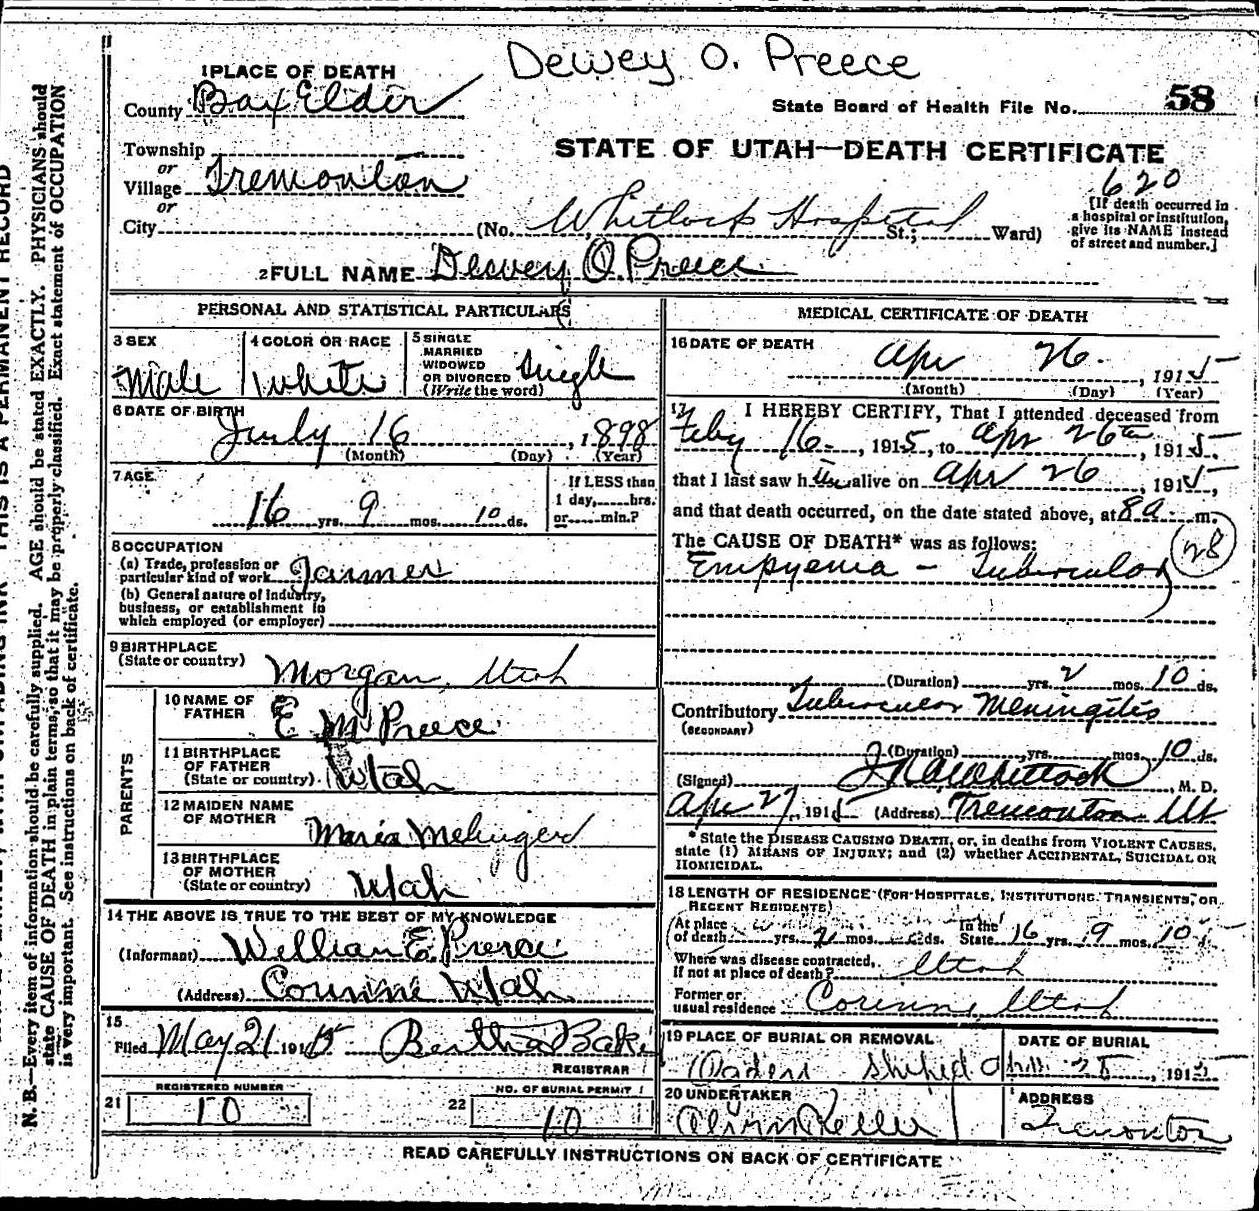 Dewey O. Preece
1 PLACE OF DEATH
County Box Elder
State Board of Health File No. 58
Township
or
Village Tremonton
or
City
STATE OF UTAH—DEATH CERTIFICATE
620
[If death occurred in
a hospital or institution,
give its NAME instead
of street and number.]
(No. Whitlock Hospital St.; Ward)
2 FULL NAME Dewey O Preece
PERSONAL AND STATISTICAL PARTICULARS
3 SEX
Male
4 COLOR OR RACE
White
5 SINGLE
MARRIED
WIDOWED
OR DIVORCED
(Write the word)
Single
6 DATE OF BIRTH
July 16, 1898
(Month) (Day) (Year)
7 AGE
16 yrs. 9 mos. 10 ds.
If LESS than
1 day, hrs.
or min.?
8 OCCUPATION
(a) Trade, profession or
particular kind of work Farmer
(b) General nature of Industry,
business, or establishment in
which employed (or employer)
9 BIRTHPLACE
(State or country)
Morgan, Utah
PARENTS
10 NAME OF
FATHER
E M Preece
11 BIRTHPLACE
OF FATHER
(State or country)
Utah
12 MAIDEN NAME
OF MOTHER
Maria
13 BIRTHPLACE
OF MOTHER
(State or country)
Utah
14 THE ABOVE IS TRUE TO THE BEST OF MY KNOWLEDGE
(Informant) William E. Preece
(Address) Corinne Utah
15
Filed May 21 1915 Bertha
REGISTRAR
REGISTERED NUMBER
21 10
NO. OF BURIAL PERMIT
22 10
MEDICAL CERTIFICATE OF DEATH
16 DATE OF DEATH
Apr 26, 1915
(Month) (Day) (Year)
17 I HEREBY CERTIFY, That I attended deceased from
Feby 16, 1915, to Apr 26th, 1915,
that I last saw him alive on Apr 26, 1915,
and that death occurred, on the date stated above, at 8 a m.
The CAUSE OF DEATH* was as follows:
28
Empyema - Tubercular
(Duration) yrs. 2 mos. 10 ds.
Contributory Tubercular Meningitis
(SECONDARY)
(Duration) yrs. mos. 10 ds.
(Signed) Whitlock, M. D.
Apr 27, 1915 (Address) Tremonton Ut
*State the DISEASE CAUSING DEATH, or, in deaths from VIOLENT CAUSES,
state (1) MEANS OF INJURY; and (2) whether ACCIDENTAL, SUICIDAL OR
HOMICIDAL.
18 LENGTH OF RESIDENCE (FOR HOSPITALS, INSTITUTIONS, TRANSIENTS, OR
RECENT RESIDENTS)
At place
of death yrs. 2 mos. ds.
In the
State 16 yrs. 9 mos. 10
Where was disease contracted,
If not at place of death? Utah
Former or
usual residence Corinne, Utah
19 PLACE OF BURIAL OR REMOVAL
Ogden Shiped
DATE OF BURIAL
Apr. 28, 1915
20 UNDERTAKER
Keller
ADDRESS
Tremonton
READ CAREFULLY INSTRUCTIONS ON BACK OF CERTIFICATE
THIS IS A PERMANENT RECORD
N. B.—Every item of information should be carefully supplied. AGE should be stated EXACTLY. PHYSICIANS should
state CAUSE OF DEATH in plain terms, so that it may be properly classified. Exact statement of OCCUPATION
is very important. See instructions on back of certificate.